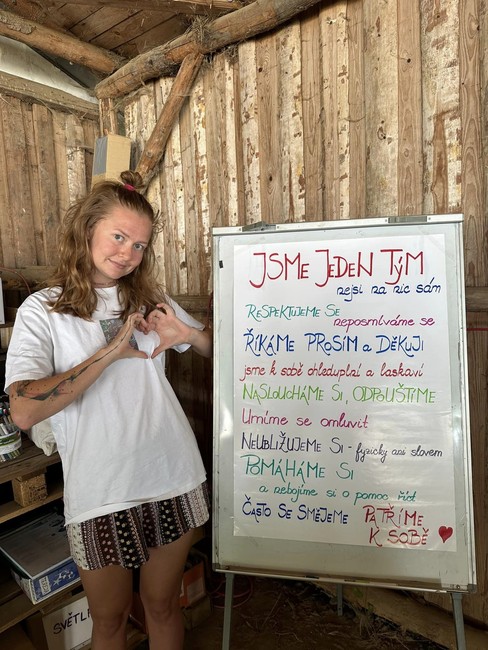 JSME JEDEN TÝM
nejsi na nic sám
RESPEKTUJEME SE
neposmíváme se
ŘÍKÁME PROSÍM a DĚKUJI
jsme k sobě ohleduplní a laskaví
NASLOUCHÁME SI, ODPOUŠTÍME
Umíme se omluvit
NEUBLIŽUJEME SI - fyzicky ani slovem
POMÁHÁME SI
a nebojíme si o pomoc říct
ČASTO SE SMĚJEME PATŘÍME
K SOBĚ
SVĚTL